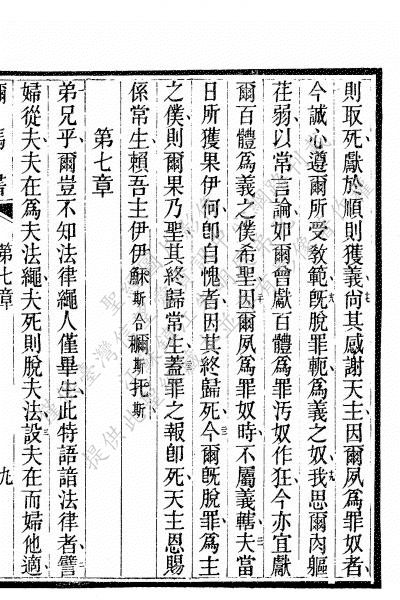 則取死獻於順則獲義尙其感謝天主因爾夙爲罪奴者
今誠心遵爾所受敎範旣脫罪軛爲義之奴我思爾肉軀
荏弱以常言論如爾曾獻百體爲罪汚奴作狂今亦宜獻
爾百體爲義之僕希聖因爾夙爲罪奴時不屬義轄夫當
日所獲果伊何卽自愧者因其終歸死今爾旣脫罪爲主
之僕則爾果乃聖其終歸常生蓋罪之報卽死天主恩賜
係常生賴吾主伊伊穌斯合托斯
第七章
弟兄乎爾豈不知法律繩人僅畢生此特語諳法律者譬
婦從夫夫在爲夫法繩夫死則脫夫法設夫在而婦他適
第七章
九